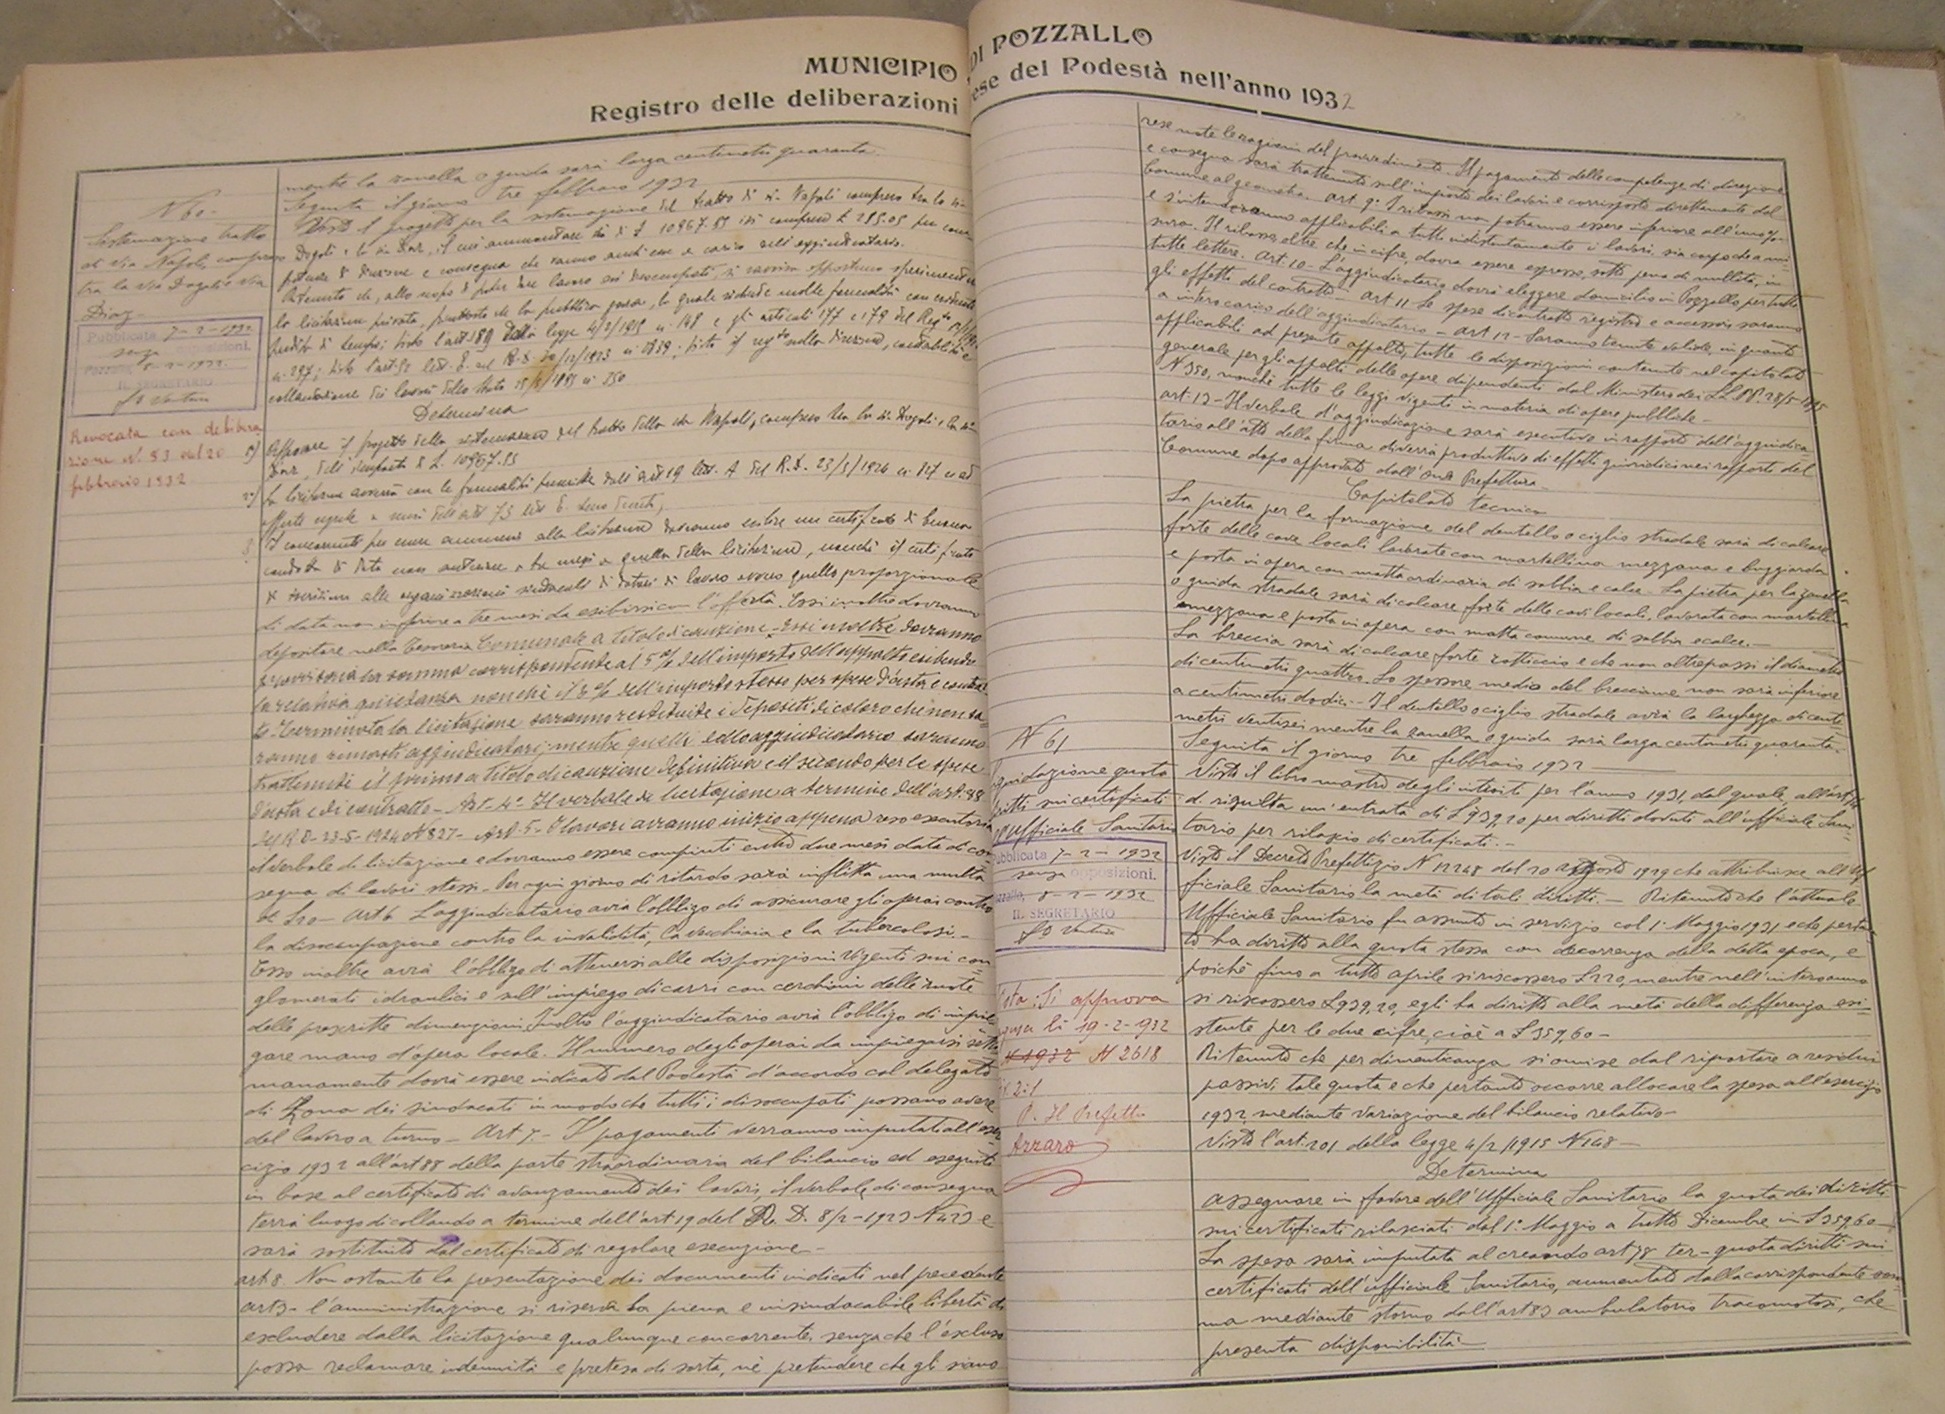 MUNICIPIO DI POZZALLO
Registro delle deliberazioni ese del Podestà nell'anno 1932
N 60 -
Sistemazione tratto
di Via Napoli, compreso
tra la Via Dogali e Via
Diaz -
Pubblicata 7-2-1932
senza opposizioni.
Pozzallo, 8-2-1932
IL SEGRETARIO
Revocata con delibera
zione N. 53 del 20
febbraio 1932
mente la zanella o guida sarà larga centimetri quaranta.
Seguita il giorno tre febbraio 1932
Visto il progetto per la sistemazione del tratto di via Napoli compreso tra la via
Dogali e la via Diaz, il cui ammontare è di £ 10967.85 ivi compreso £ 285.05 per com
petenze di direzione e consegna che vanno anch'esse a carico dell'aggiudicatario.
Ritenuto che, allo scopo di poter dare lavoro ai disoccupati si ravvisa opportuno sperimentare
la licitazione privata, piuttosto che la pubblica gara, la quale richiede molte formalità con
perdita di tempo; visto l'art 189 della legge 4/2/1915 n. 148 e gli articoli 177 e 179 del Reg.to
n. 297; visto l'art. 52 lett. E. del R. D. 30/12/1923 n. 2839; visto il reg.to sulla direzione, contabilità e
collaudazione dei lavori dello Stato 25/5/1895 n. 350
Determina
1°) Approvare il progetto della sistemazione del tratto della via Napoli, compreso tra la via Dogali e la via
Diaz, dell'importo di £. 10967.85
2°) La licitazione avverrà con le formalità prescritte dall'art 89 lett. A del R.D. 23/5/1924 n. 827 e ad
offerte segrete a mezzo dell'art 73 lett. C. stesso decreto,
3 I concorrenti per essere ammessi alla licitazione dovranno esibire un certificato di buona
condotta di data non anteriore a tre mesi a quella della licitazione, nonchè il certificato
di iscrizione alle organizzazioni sindacali di datori di lavoro ovvero quello proporzionale
di data non inferiore a tre mesi da esibirsi con l'offerta. Essi inoltre dovranno
depositare nella Tesoreria Comunale a titolo di cauzione - Essi inoltre dovranno
provvisoria la somma corrispondente al 5% dell'importo dell'appalto esibendo
la relativa quietanza nonchè il 3% dell'importo stesso per spese d'asta e contrat
to. Terminata la licitazione saranno restituite i depositi di coloro che non sa
ranno rimasti aggiudicatari, mentre quelli dello aggiudicatario saranno
trattenuti il primo a titolo di cauzione definitiva e il secondo per le spese
d'asta e di contratto - Art. 4° Il verbale di licitazione a termine dell'art. 88
del R D - 23-5-1924 N 827 - Art. 5 - I lavori avranno inizio appena reso esecutorio
il verbale di licitazione e dovranno essere compiuti entro due mesi data di con
segna di lavori stessi - Per ogni giorno di ritardo sarà inflitta una multa
di L 20 - Art 6 L'aggiudicatario avrà l'obbligo di assicurare gli operai contro
la disoccupazione contro la invalidità, la vecchiaia e la tubercolosi -
Esso inoltre avrà l'obbligo di attenersi alle disposizioni vigenti sui con
glomerati idraulici e sull'impiego di carri con cerchioni delle ruote
delle prescritte dimensioni. Inoltre l'aggiudicatario avrà l'obbligo di impie
gare mano d'opera locale. Il numero degli operai da impiegarsi setti
manamente dovrà essere indicato dal Podestà d'accordo col delegato
di Zona dei sindacati in modo che tutti i disoccupati possano avere
del lavoro a turno - Art 7 - I pagamenti verranno imputati all'eser
cizio 1932 all'art 88 della parte straordinaria del bilancio ed eseguiti
in base al certificato di avanzamento dei lavori, il verbale di consegna
terrà luogo di collaudo a termine dell'art 19 del R. D. 8/2-1923 N 423 e
sarà sostituito dal certificato di regolare esecuzione -
art 8 Non ostante la presentazione dei documenti indicati nel precedente
art 3 - l'amministrazione si riserva la piena e insindacabile libertà di
escludere dalla licitazione qualunque concorrente, senza che l'escluso
possa reclamare indennità e pretesa di sorta, nè pretendere che gli siano
rese note le ragioni del provvedimento. Il pagamento delle competenze di direzione
e consegna sarà trattenuto sull'importo dei lavori e corrisposto direttamente dal
Comune al geometra. art 9° I ribassi non potranno essere inferiore all'uno %
e s'intenderanno applicabili a tutti indistintamente i lavori, sia corpo che a mi
sura. Il ribasso, oltre che in cifre, dovrà essere espresso, sotto pena di nullità, in
tutte lettere. art. 10 - L'aggiudicatario dovrà eleggere domicilio in Pozzallo, per tutti
gli effetti del contratto - art 11 Le spese di contratto registro e accessori saranno
a intero carico dell'aggiudicatario - art 12 - Saranno tenute valide, in quanto
applicabili al presente appalto, tutte le disposizioni contenute nel capitolato
generale per gli appalti delle opere dipendenti dal Ministero dei LL PP. 28/5-1895
N 350, nonchè tutte le leggi vigenti in materia di opere pubbliche -
art. 13 - Il verbale d'aggiudicazione sarà esecutivo in rapporto dell'aggiudica
tario all'atto della firma, diverrà produttivo di effetti giuridici nei rapporti del
Comune dopo approvato dall'On.le Prefettura -
Capitolato tecnico
La pietra per la formazione del dentello o ciglio stradale sarà di calcare
forte delle cave locali lavorate con martellina mezzana e buggiarda
e posta in opera con malta ordinaria di sabbia e calce. La pietra per la zanella
o guida stradale sarà di calcare forte delle cave locali, lavorata con martellina
mezzana e posta in opera con malta comune di sabbia e calce. -
La breccia sarà di calcare forte rotticcio e che non oltrepassi il diametro
di centimetri quattro. Lo spessore medio del brecciame non sarà inferiore
a centimetri dodici - Il dentello o ciglio stradale avrà la larghezza di centi
metri ventisei mentre la zanella o guida sarà larga centimetri quaranta.
N 61
Liquidazione quota
diritti sui certificati
all'Ufficiale Sanitario
Pubblicata 7-2-1932
senza opposizioni.
Pozzallo, 8-2-1932
IL SEGRETARIO
Visto: Si approva
Ragusa li 19-2-932
N 2618
Div 2.1
P. Il Prefetto
Azzaro
Seguita il giorno tre febbraio 1932
Visto il libro mastro degli introiti per l'anno 1931, dal quale, all'art
si risulta un'entrata di L 939,20 per diritti dovuti all'ufficiale Sani
tario per rilascio di certificati. -
Visto il Decreto Prefettizio N 12248 del 20 agosto 1929 che attribuisce all'Uf
ficiale Sanitario la metà di tali diritti. - Ritenuto che l'attuale
Ufficiale Sanitario fu assunto in servizio col 1° Maggio 1931 e che pertan
to ha diritto alla quota stessa con decorrenza dalla detta epoca, e
poichè fino a tutto aprile si riscossero L 220, mentre nell'intero anno
si riscossero L 939,20, egli ha diritto alla metà della differenza esi
stente per le due cifre, cioè a L 359,60 -
Ritenuto che per dimenticanza si omise dal riportare a residui
passivi tale quota e che pertanto occorre allocare la spesa all'esercizio
1932 mediante variazione del bilancio relativo -
Visto l'art. 201 della legge 4/2/1915 N 148 -
Determina
assegnare in favore dell'Ufficiale Sanitario la quota dei diritti
sui certificati rilasciati dal 1° Maggio a tutto Dicembre in L 359,60 -
La spesa sarà imputata al creando art 38 ter - quota diritti sui
certificati dell'ufficiale Sanitario, aumentato dalla corrispondente som
ma mediante storno dall'art 83 ambulatorio tracomatosi, che
presenta disponibilità -